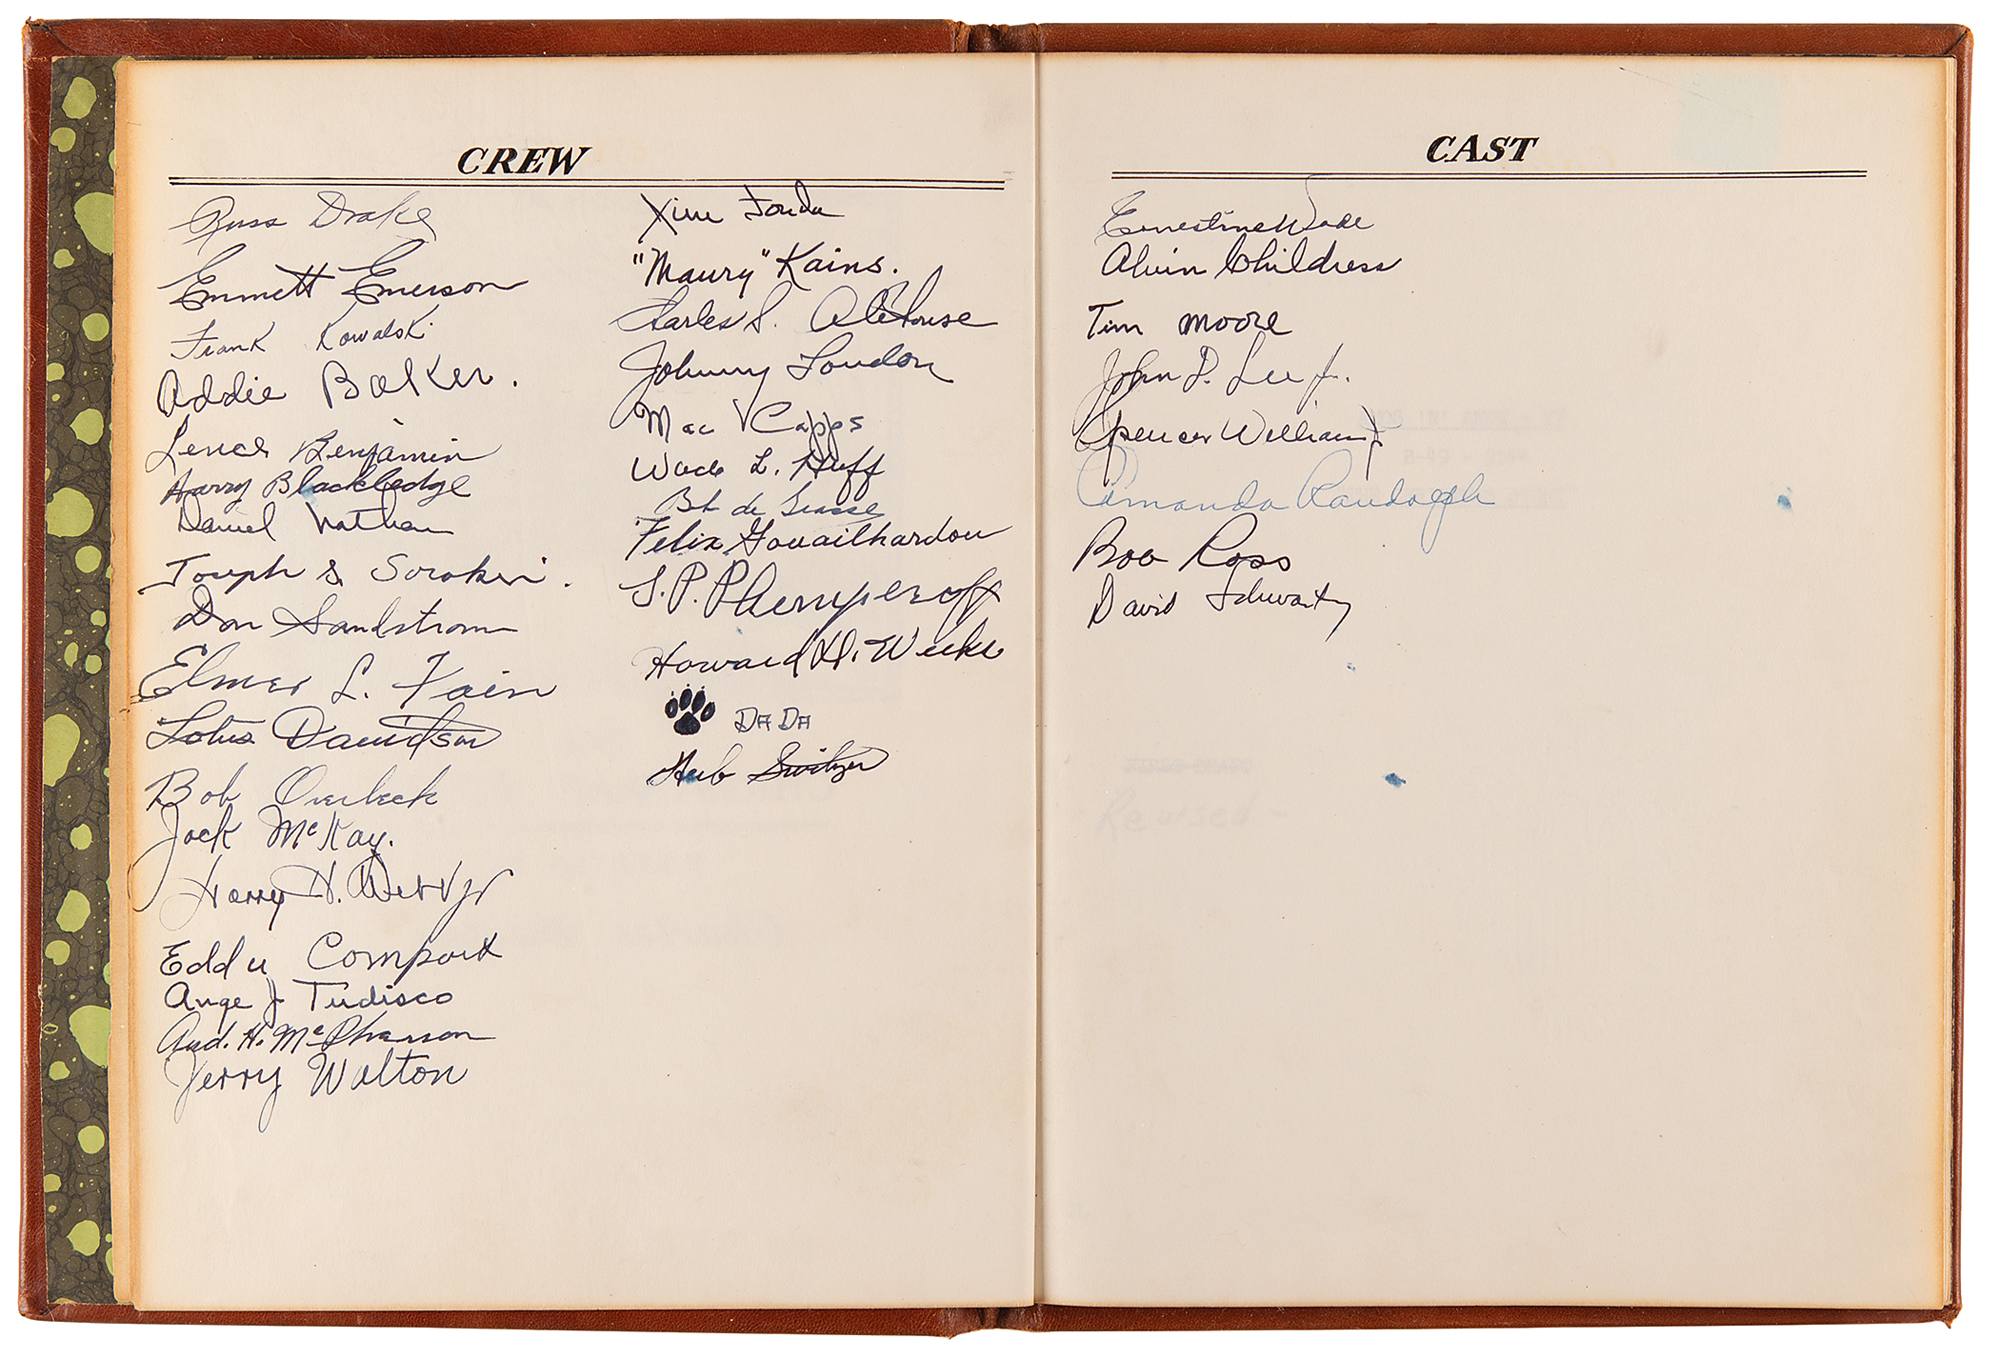 CREW
Russ Drake
Emmett Emerson
Frank Kowalski
Addie Baker.
Lence Benjamin
Harry Blackledge
Daniel Nathan
Joseph S Sorokin.
Don Sandstrom
Elmer L. Fain
Lotus Davidson
Bob Overbeck
Jack McKay.
Harry H.
Eddy Comport
Ange J Tudisco
And. H. McPherson
Jerry Walton
Jim Fonda
"Maury" Kains.
Charles S. Althouse
Johnny London
Mac Capps
Wade L. Huff
de Grasse
Felix Gouailhardou
S. P. Phempenoff
Howard H. Weeks
DA DA
Herb Switzer
CAST
Ernestine Wade
Alvin Childress
Tim Moore
John D. Lee Jr.
Spencer Williams Jr
Amanda Randolph
Bob Ross
David Schwartz
Revised -